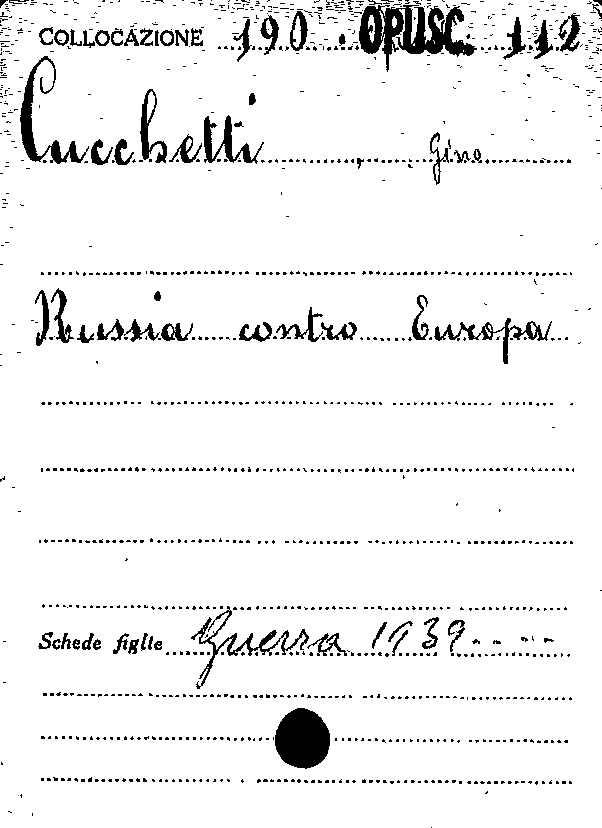 COLLOCAZIONE 190. OPUSC. 112
Cucchetti, Gino
Russia contro Europa
Schede figlie Guerra 1939----